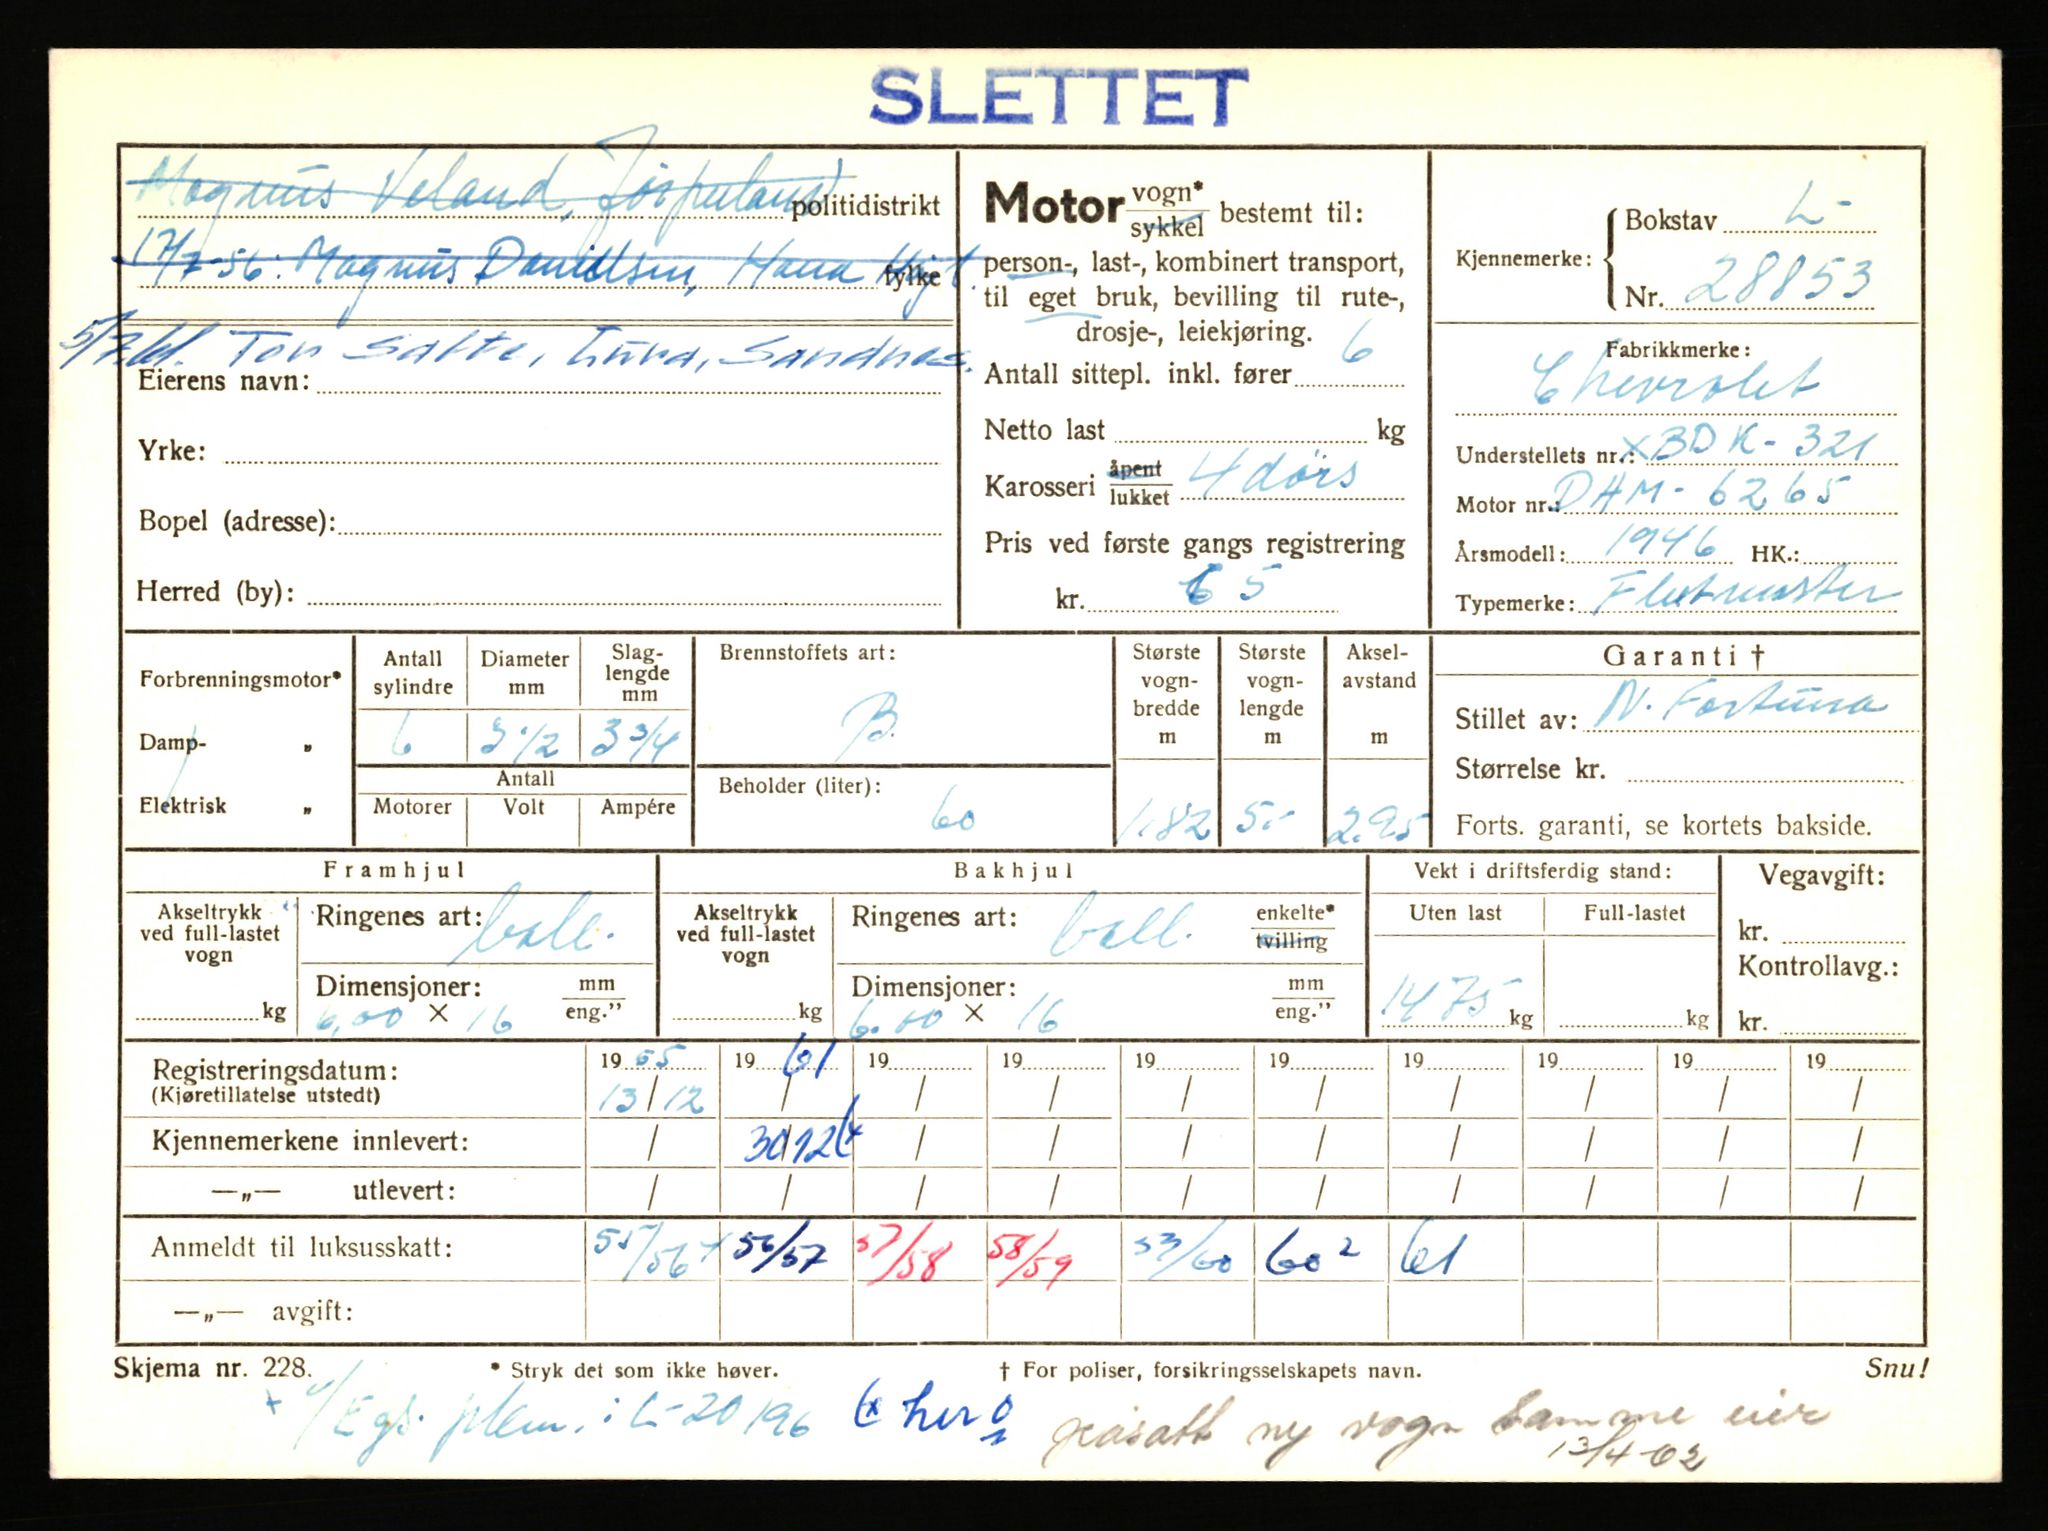 SLETTET
Magnus Veland, Jørpeland politidistrikt
17/7-56: Magnus Danielsen, Hana Høyl. fylke
5/7.61. Tor Salte, Lura, Sandnes.
Eierens navn:
Yrke:
Bopel (adresse):
Herred (by):
Motor vogn* sykkel bestemt til:
person-, last-, kombinert transport,
til eget bruk, bevilling til rute-,
drosje-, leiekjøring.
Antall sittepl. inkl. fører 6
Netto last kg
Karosseri åpent lukket 4 dørs
Pris ved første gangs registrering
kr. 65
Kjennemerke: Bokstav L-
Nr. 28853
Fabrikkmerke:
Chevrolet
Understellets nr.: xBDK-321
Motor nr.: DAM-6265
Årsmodell: 1946 HK.:
Typemerke: Fleetmaster
Forbrenningsmotor*
Damp- „
Elektrisk „
Antall sylindre 6
Diameter mm 3 1/2
Slag-lengde mm 3 3/4
Antall
Motorer Volt Ampére
Brennstoffets art:
B.
Beholder (liter):
60
Største vogn-bredde m 1.82
Største vogn-lengde m 5.-
Aksel-avstand m 2.95
Garanti †
Stillet av: N. Fortuna
Størrelse kr.
Forts. garanti, se kortets bakside.
Framhjul
Akseltrykk ved full-lastet vogn
kg
Ringenes art: ball.
Dimensjoner: mm eng."
6,00 × 16
Bakhjul
Akseltrykk ved full-lastet vogn
kg
Ringenes art: ball. enkelte* tvilling
Dimensjoner: mm eng."
6.00 × 16
Vekt i driftsferdig stand:
Uten last Full-lastet
1475 kg kg
Vegavgift:
kr.
Kontrollavg.:
kr.
Registreringsdatum: 1955 1961 19 19 19 19 19 19 19 19
(Kjøretillatelse utstedt) 13/12 / / / / / / / / /
Kjennemerkene innlevert: / 30/12 / / / / / / / /
—„— utlevert: / / / / / / / / / /
Anmeldt til luksusskatt: 55/56 56/57 57/58 58/59 59/60 60² 61
—„— avgift:
Skjema nr. 228. * Stryk det som ikke høver. † For poliser, forsikringsselskapets navn. Snu!
+ i L-20196 her påsatt ny vogn samme eier
13/4-62